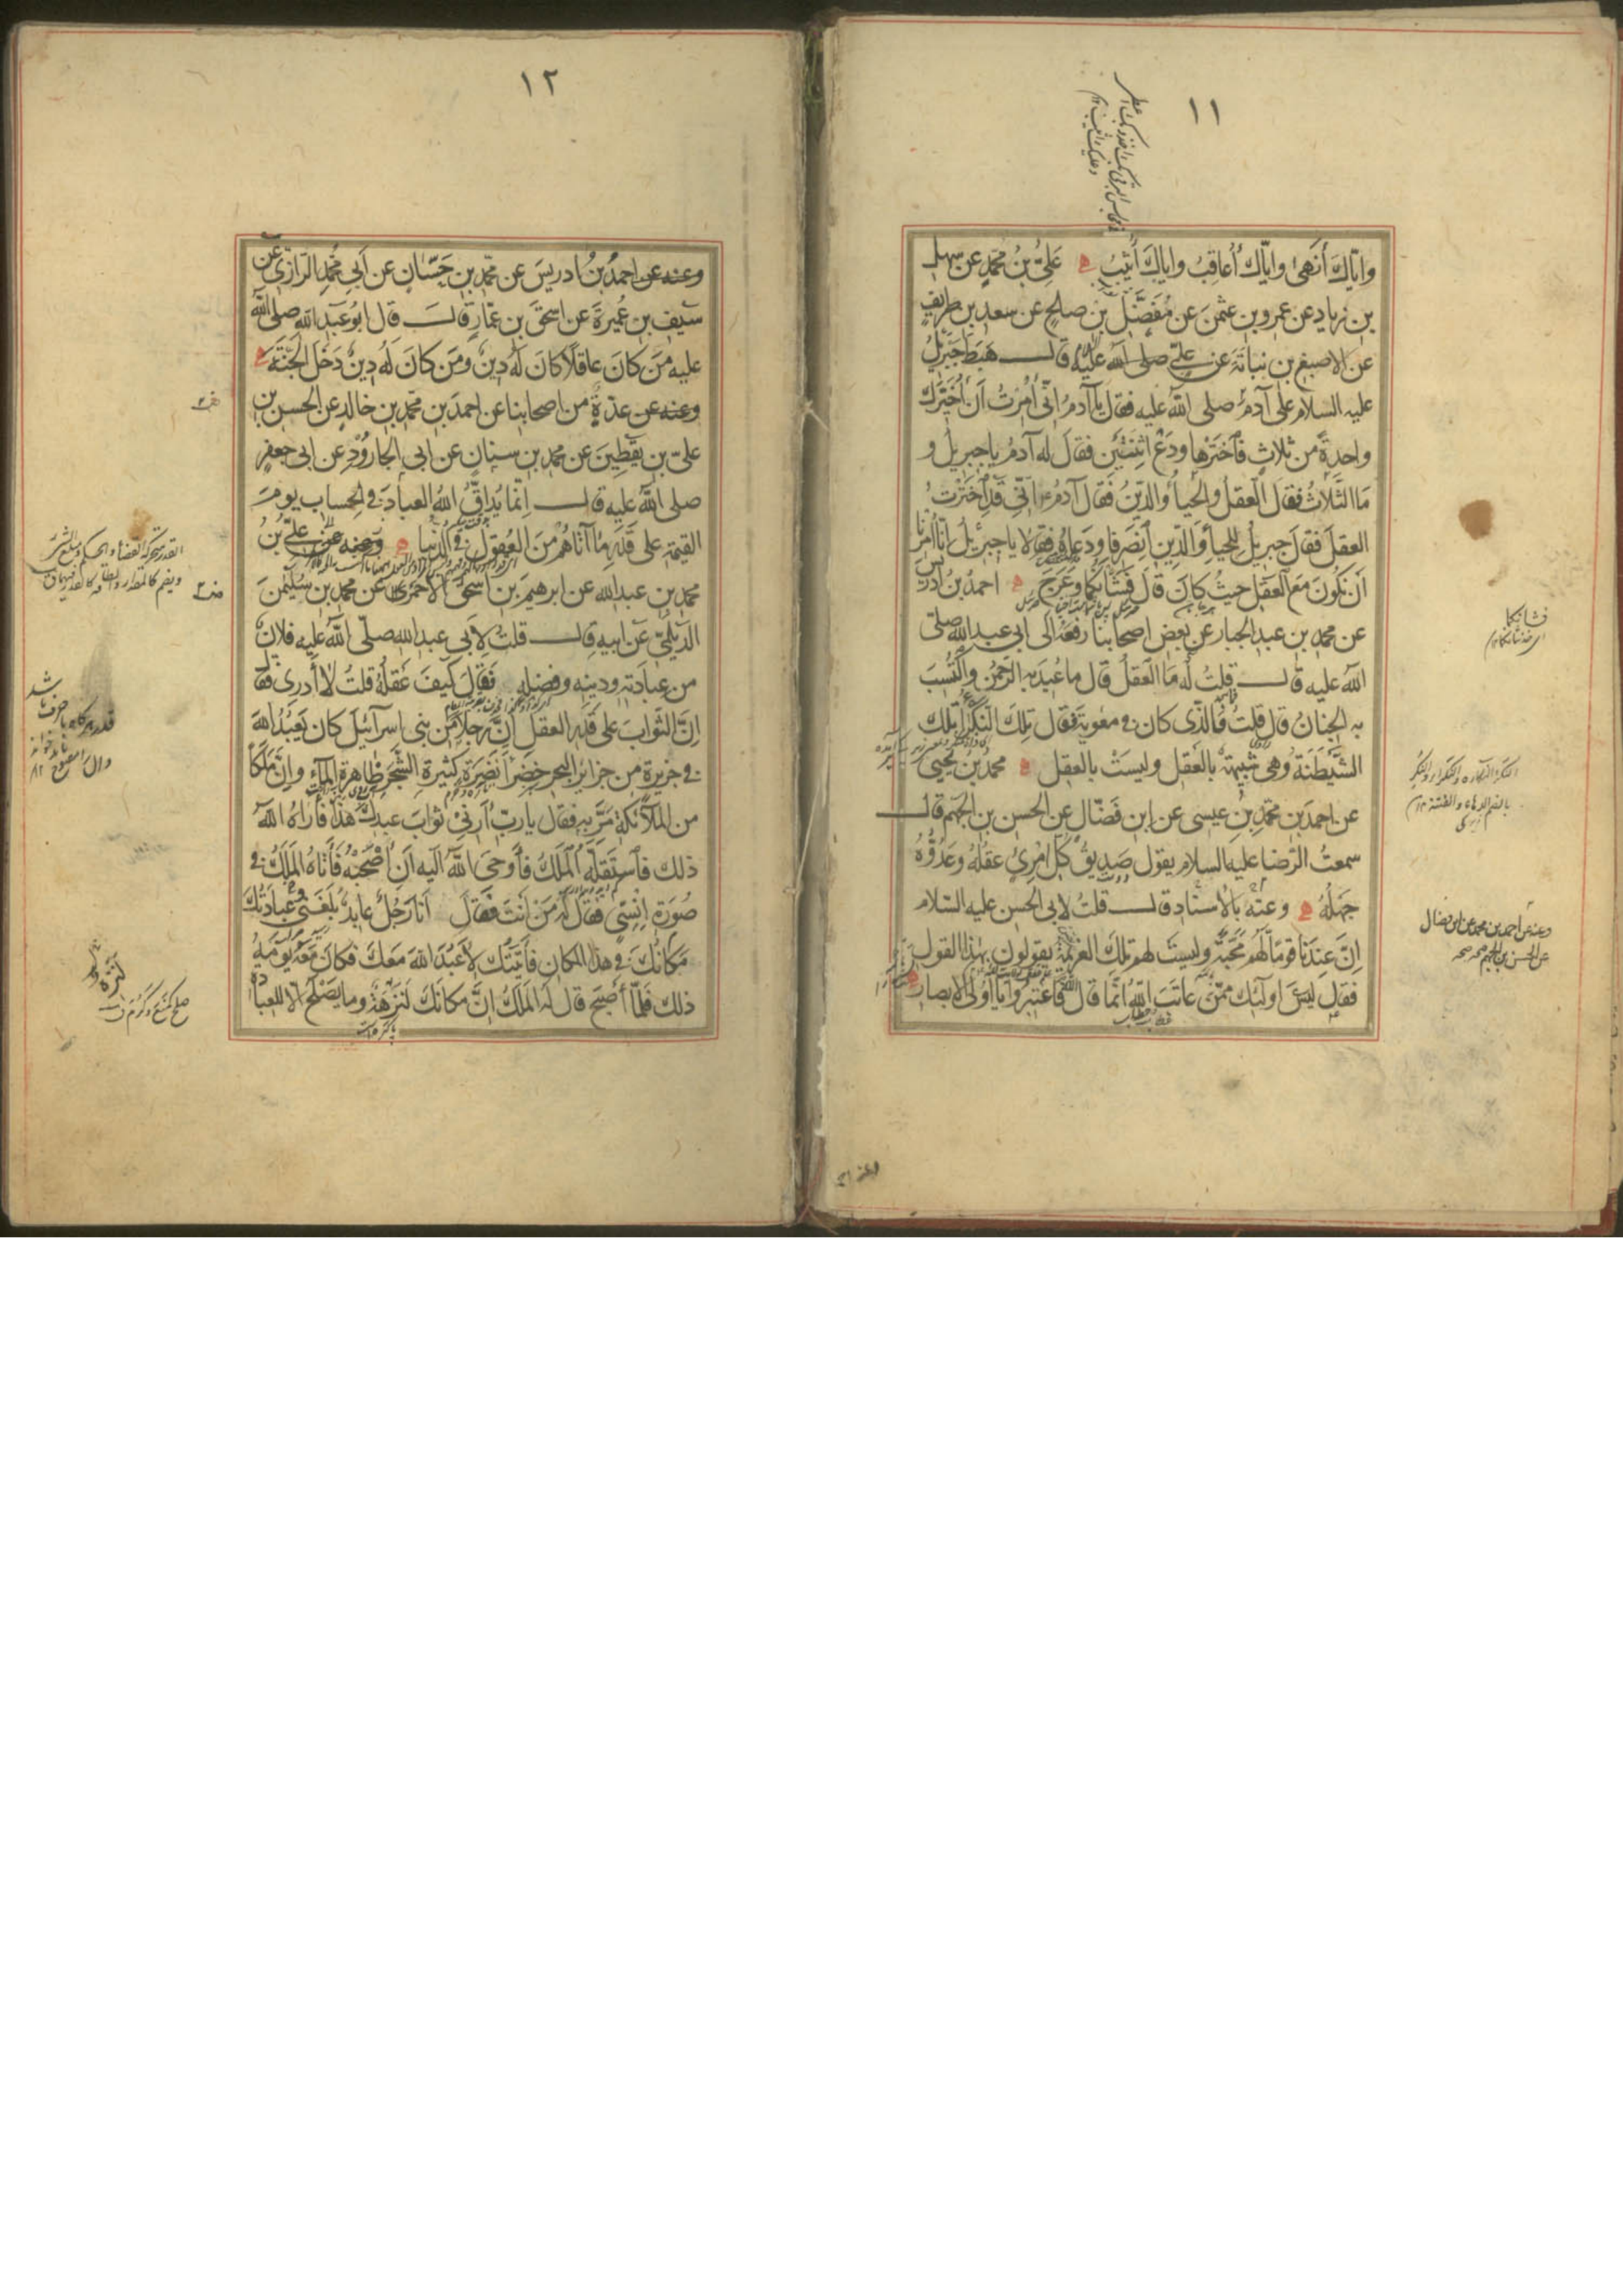 ١١
واياك أنهى واياك أعاقب واياك أثيب علي بن محمد عن سهل
بن زياد عن عمرو بن عثمن عن مفضل بن صالح عن سعد بن طريف
عن الاصبغ بن نباتة عن علي صلى الله عليه قال هبط جبرئيل
عليه السلام على آدم صلى الله عليه فقال يا آدم اني أمرت أن أخيرك
واحدة من ثلاث فاخترها ودع اثنتين فقال له آدم يا جبرئيل و
ما الثلاث فقال العقل والحياء والدين فقال آدم اني قد اخترت
العقل فقال جبرئيل للحياء والدين انصرفا ودعاه فقالا يا جبرئيل انا أمرنا
أن نكون مع العقل حيث كان قال فشأنكما وعرج احمد بن ادريس
عن محمد بن عبد الجبار عن بعض اصحابنا رفعه الى ابى عبد الله صلى
الله عليه قال قلت له ما العقل قال ما عبد به الرحمن واكتسب
به الجنان قال قلت فالذى كان في معوية فقال تلك النكراء تلك
الشيطنة وهي شبيهة بالعقل وليست بالعقل محمد بن يحيى
عن احمد بن محمد بن عيسى عن ابن فضال عن الحسن بن الجهم قال
سمعت الرضا عليه السلام يقول صديق كل امرئ عقله وعدوه
جهله وعنه بالاسناد قال قلت لابي الحسن عليه السلام
إن عندنا قوما لهم محبة وليست لهم تلك العزيمة يقولون بهذا القول
فقال ليس اولئك ممن عاتب الله انما قال الله فاعتبروا يا اولى الابصار
فشأنكما
وعنه عن احمد بن محمد عن ابن فضال
عن الحسن بن الجهم
١٢
وعنه عن احمد بن ادريس عن محمد بن حسان عن أبي محمد الرازي عن
سيف بن عميرة عن اسحق بن عمار قال قال ابو عبد الله صلى الله
عليه من كان عاقلا كان له دين ومن كان له دين دخل الجنة
وعنه عن عدة من اصحابنا عن احمد بن محمد بن خالد عن الحسن بن
علي بن يقطين عن محمد بن سنان عن ابي الجارود عن ابى جعفر
صلى الله عليه قال إنما يداق الله العباد في الحساب يوم
القيمة على قدر ما آتاهم من العقول في الدنيا وعنه عن علي بن
محمد بن عبد الله عن ابرهيم بن اسحق الاحمري عن محمد بن سليمن
الديلمي عن ابيه قال قلت لأبي عبد الله صلى الله عليه فلان
من عبادته ودينه وفضله فقال كيف عقله قلت لا أدرى فقال
إن الثواب على قدر العقل إن رجلا من بني اسرآئيل كان يعبد الله
في جزيرة من جزائر البحر خضراء نضرة كثيرة الشجر ظاهرة الماء وإن ملكا
من الملائكة مر به فقال يا رب أرني ثواب عبدك هذا فأراه الله
ذلك فاستقله الملك فأوحى الله اليه أن اصحبه فأتاه الملك في
صورة إنسي فقال له من أنت فقال أنا رجل عابد بلغني عبادتك
مكانك في هذا المكان فأتيتك لأعبد الله معك فكان معه يومه
ذلك فلما أصبح قال له الملك ان مكانك لنزه وما يصلح الا للعبادة